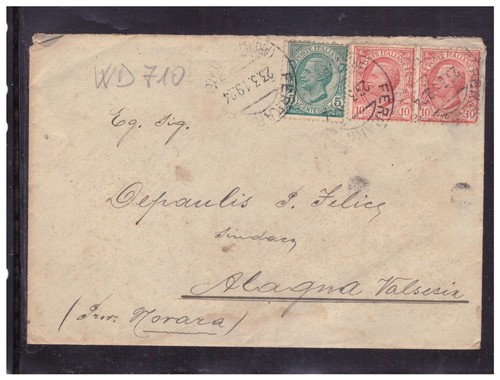 WD 710
POSTE ITALIANE
5
POSTE ITALIANE
10 10
10
23.3.1924
FERR
Eg. Sig.
Depaulis P. Felice
Sindaco
Alagna Valsesia
(Prov. Novara)